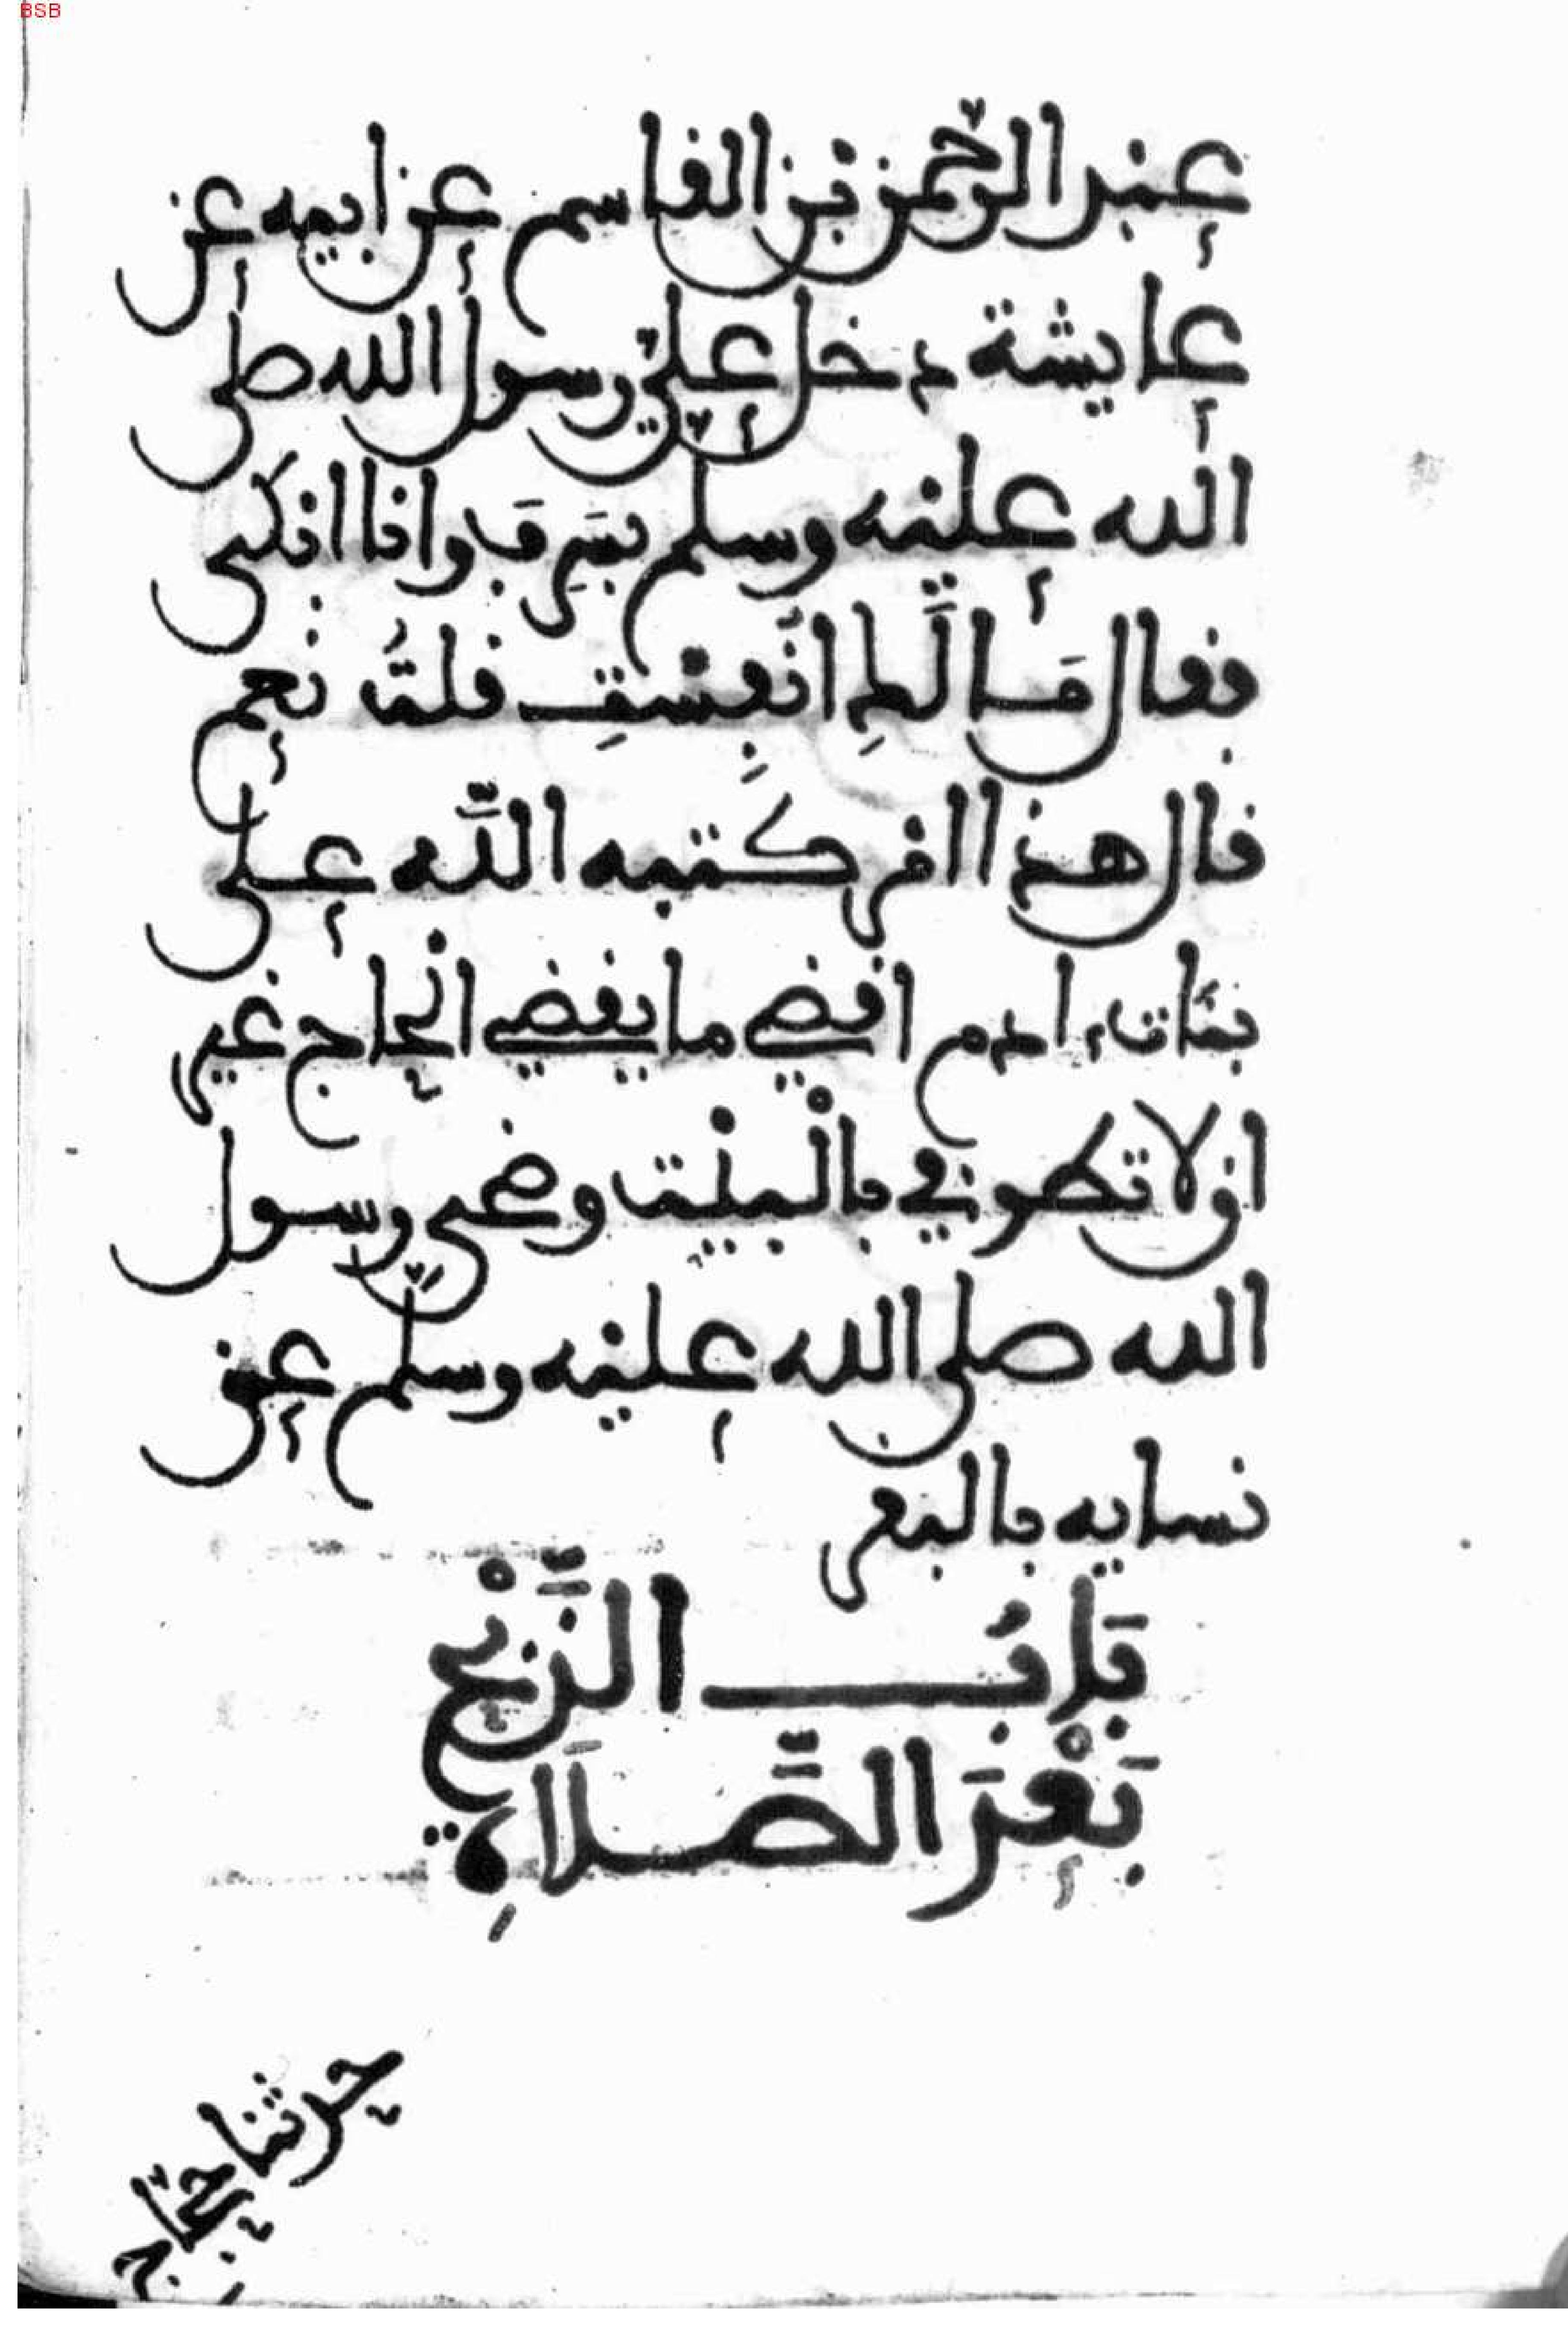 BSB
عبد الرحمن بن القاسم عن ابيه عن
عايشة دخل علي رسول الله صلى
الله عليه وسلم بسرف وانا ابكي
فقال مَا لَكِ انَفِسْتِ قلتُ نعم
قال هذا امر كتبه الله على
بنات ءادم اقضي ما يقضي الحاج غير
ان لا تطوفي بالْبيت وضحى رسول
الله صلى الله عليه وسلم عن
نسايه بالبقر
بَابُ الذَّبْحِ
بَعْدَ الصَّلَاةِ
حدثنا
حجاج